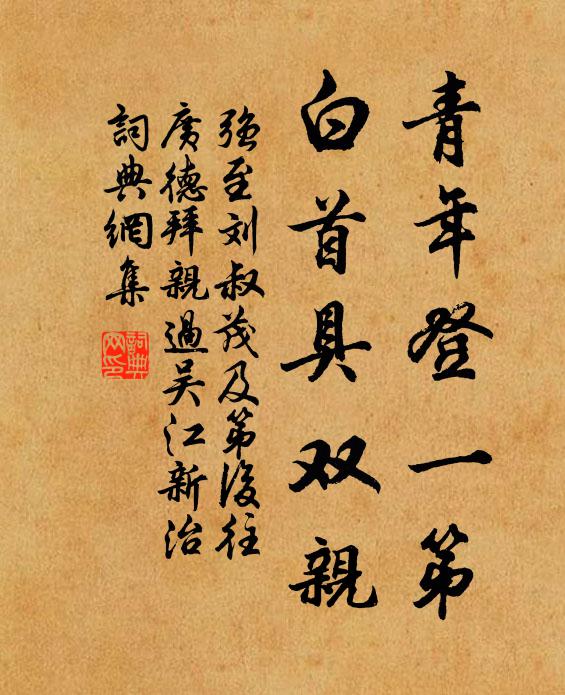 青年登一第
白首具双親
强至刘叔茂及第後往
廣德拜親過吴江新治
詞典網集
詞典
网印